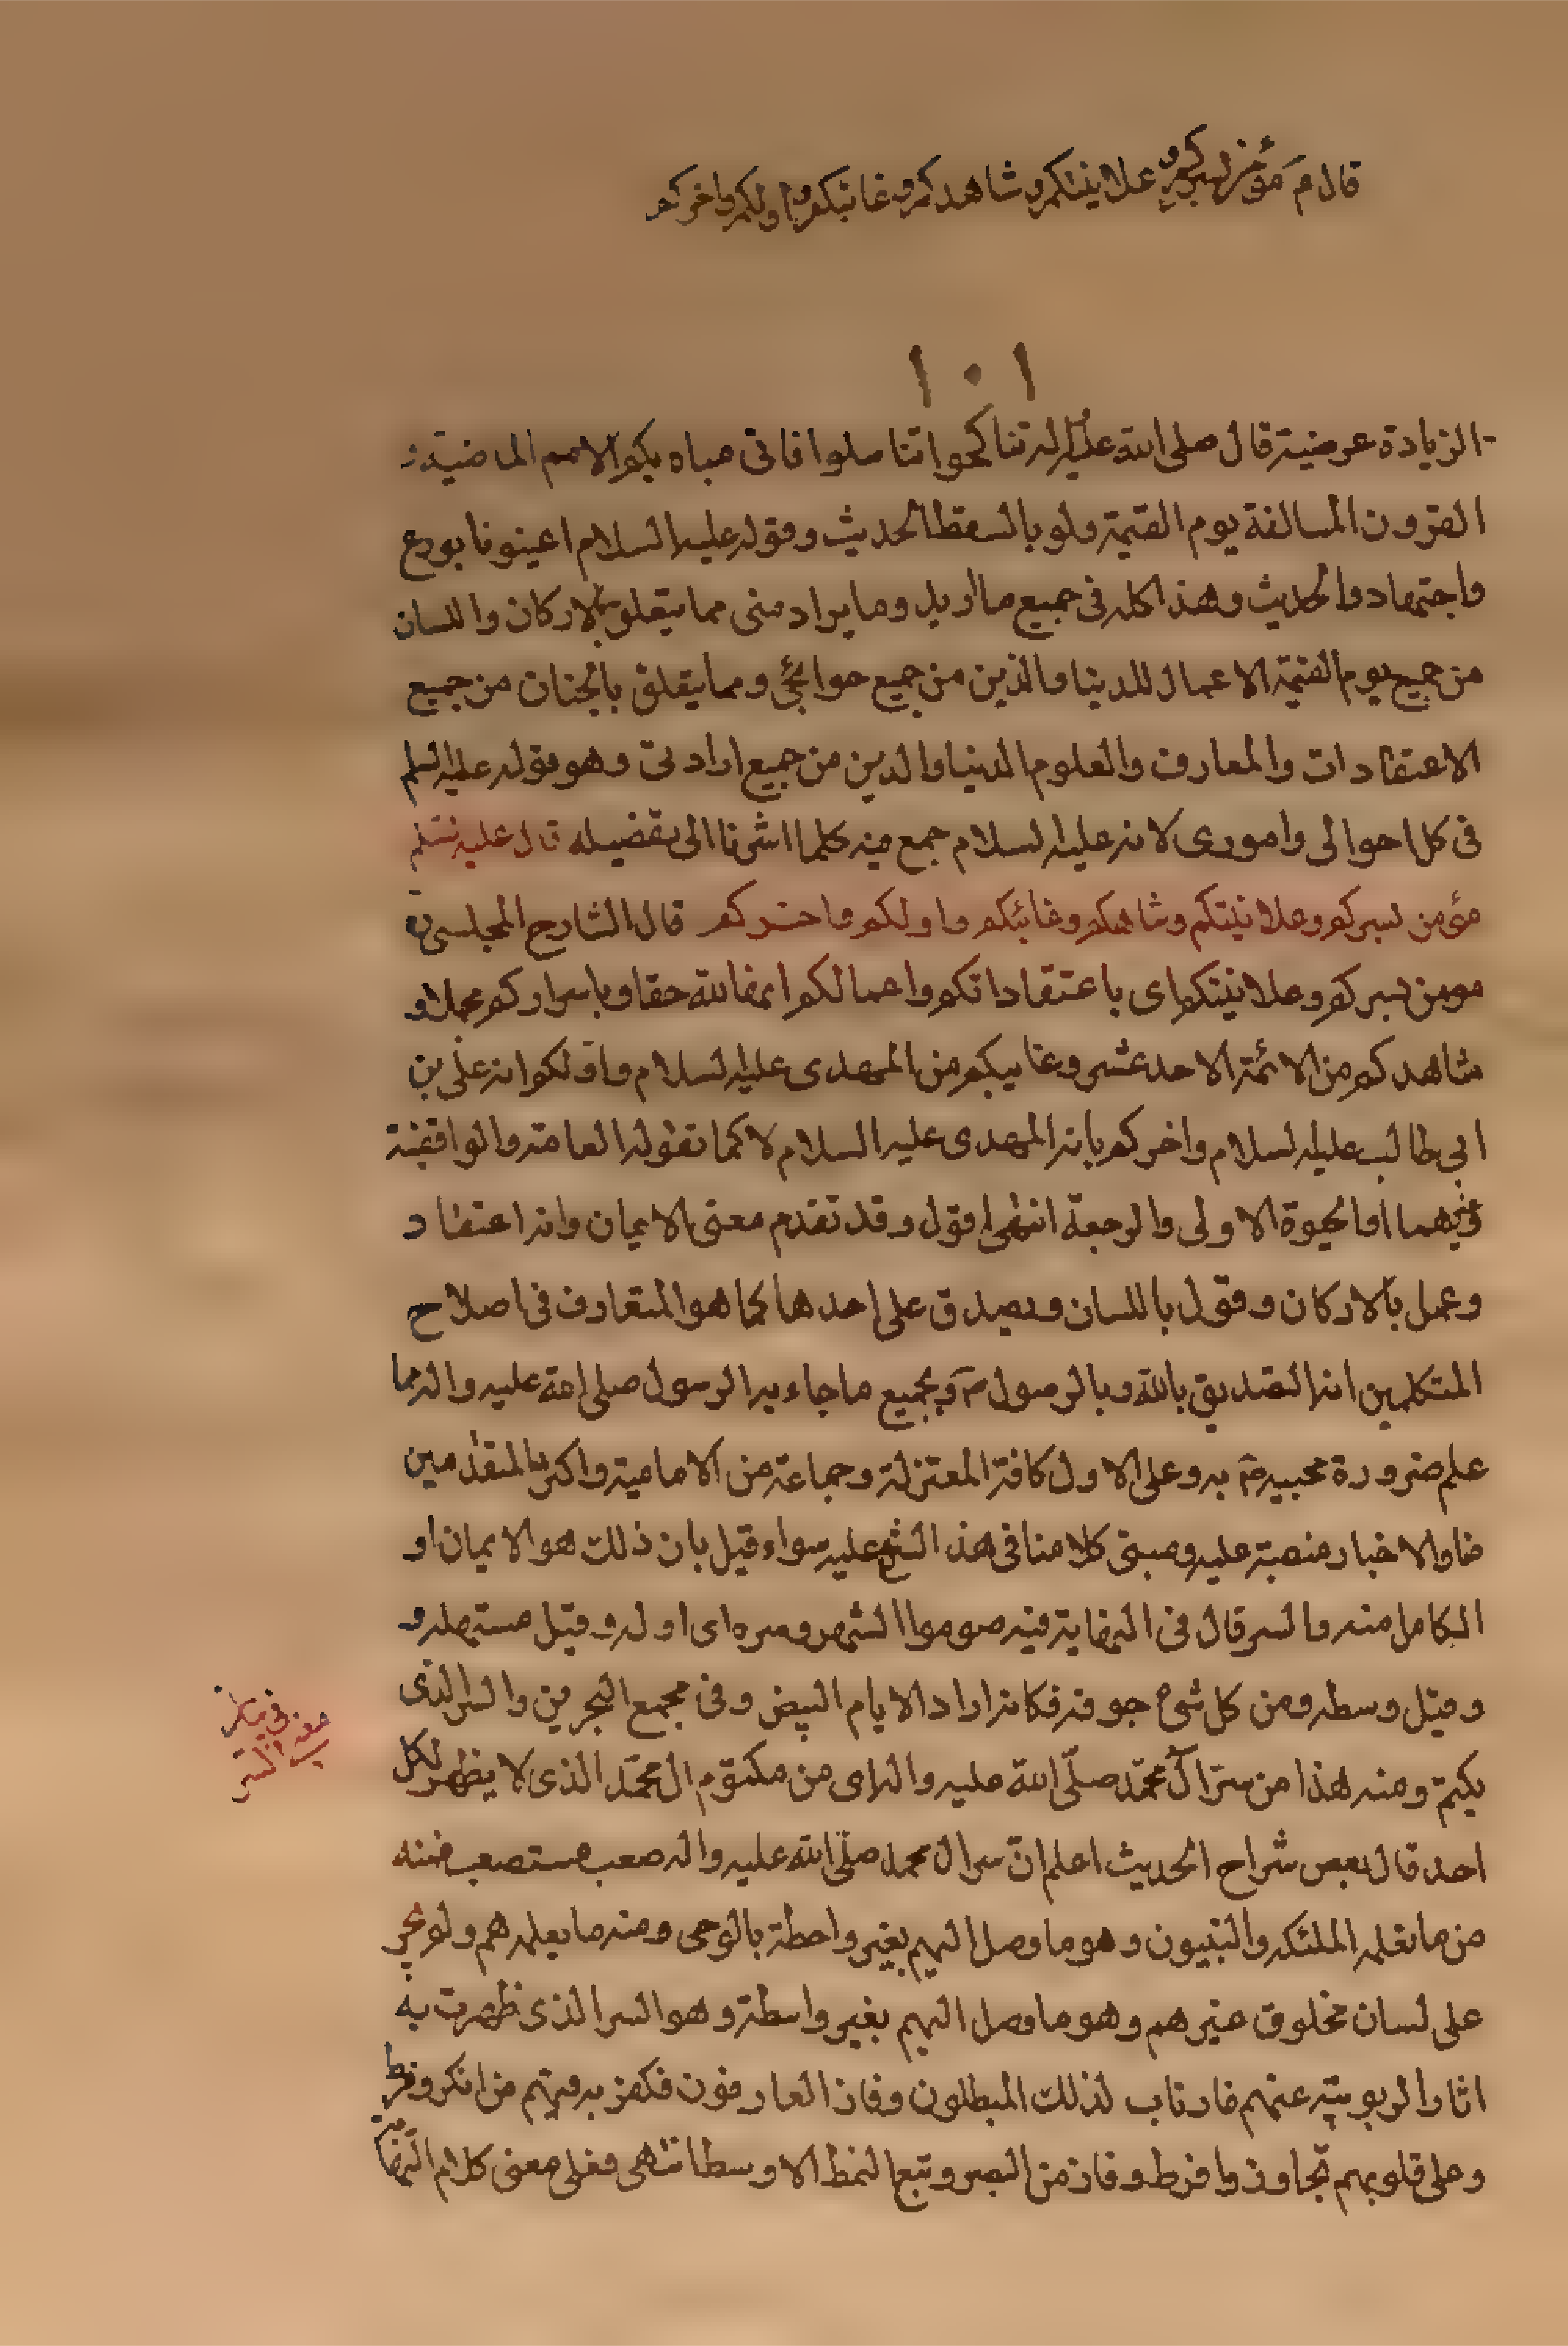 قال م مؤمن بسركم و علانيتكم و شاهدكم و غائبكم و اولكم و اخركم
١٠١
الزيادة عرضية قال صلى الله عليه واله تناكحوا تناسلوا فانى مباه بكم الامم الماضية و
القرون السالفة يوم القيمة ولو بالسقط الحديث وقوله عليه السلام اعينونا بورع
واجتهاد والحديث وهذا كله فى جميع ما اريد وما يراد منى مما يتعلق بالاركان واللسان
من جميع يوم القيمة الاعمال للدينا والدين من جميع حوائجى ومما يتعلق بالجنان من جميع
الاعتقادات والمعارف والعلوم الدنيا والدين من جميع ارادتى وهو قوله عليه السلم
فى كل احوالى وامورى لانه عليه السلام جمع فيه كلما اشرنا الى تفضيله قال عليه السلم
مؤمن بسركم وعلانيتكم وشاهدكم وغائبكم واولكم واخركم قال الشارح المجلسى ره
مومن بسركم وعلانيتكم اى باعتقاداتكم واعمالكم ايمانا لله حقا وباسراركم مجملا و
شاهدكم من الائمة الاحد عشر وغايبكم من المهدى عليه السلام واولكم انه على بن
ابى طالب عليه السلام واخركم بانه المهدى عليه السلام لا كما تقوله العامة والواقفية
فيهما او الحيوة الاولى والرجعة انتهى اقول وقد تقدم معنى الايمان وانه اعتقاد
وعمل بالاركان وقول باللسان ويصدق على احدها كما هو المتعارف فى اصلاح
المتكلمين انه التصديق بالله وبالرسول ص وبجميع ما جاء به الرسول صلى الله عليه واله مما
علم ضرورة مجيئه ص به وعلى الاول كافة المعتزلة وجماعة من الامامية واكثر المتقدمين
منا والاخبار منصبة عليه ومبنى كلامنا فى هذا الشرح عليه سواء قيل بان ذلك هو الايمان او
الكامل منه والسر قال فى النهاية فيه صوموا الشهر وسره اى اوله وقيل مستهله و
وقيل وسطه ومن كل شئ جوفه فكانه اراد الايام البيض وفى مجمع البحرين والسر الذى
يكتم ومنه هذا من سر ال محمد صلى الله عليه واله اى من مكتوم ال محمد الذى لا يظهر لكل
احد قال بعض شراح الحديث اعلم ان سر ال محمد صلى الله عليه واله صعب مستصعب فمنه
من ما تعلمه الملئكة والنبيون وهو ما وصل اليهم بغير واسطة بالوحى ومنه ما يعلمه هم ولو يجر
على لسان مخلوق غيرهم وهو ما وصل اليهم بغير واسطة وهو السر الذى ظهرت به
اثار الربوبية عنهم فارتاب لذلك المبطلون وفاز العارفون فكفر به فيهم من انكر وفرط
وعلى قلوبهم تجاوز وافرط وفاز من البصر وتبع النمط الاوسط انتهى فعلى معنى كلام النهاية
معنى
السر